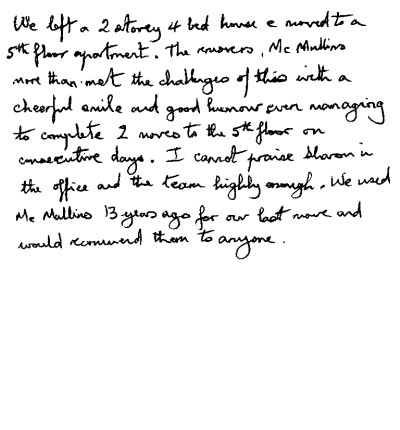 We left a 2 storey 4 bed house & moved to a
5th floor apartment. The movers, Mc Mullins
more than met the challenges of this with a
cheerful smile and good humour even managing
to complete 2 moves to the 5th floor on
consecutive days. I cannot praise Sharon in
the office and the team highly enough. We used
Mc Mullins 13 years ago for our last move and
would recommend them to anyone.